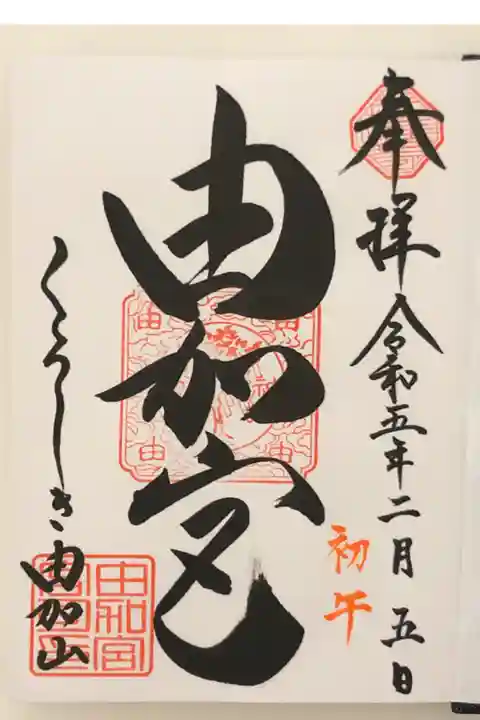 奉拝 令和五年二月五日
初午
由加宮
くらしき 由加山